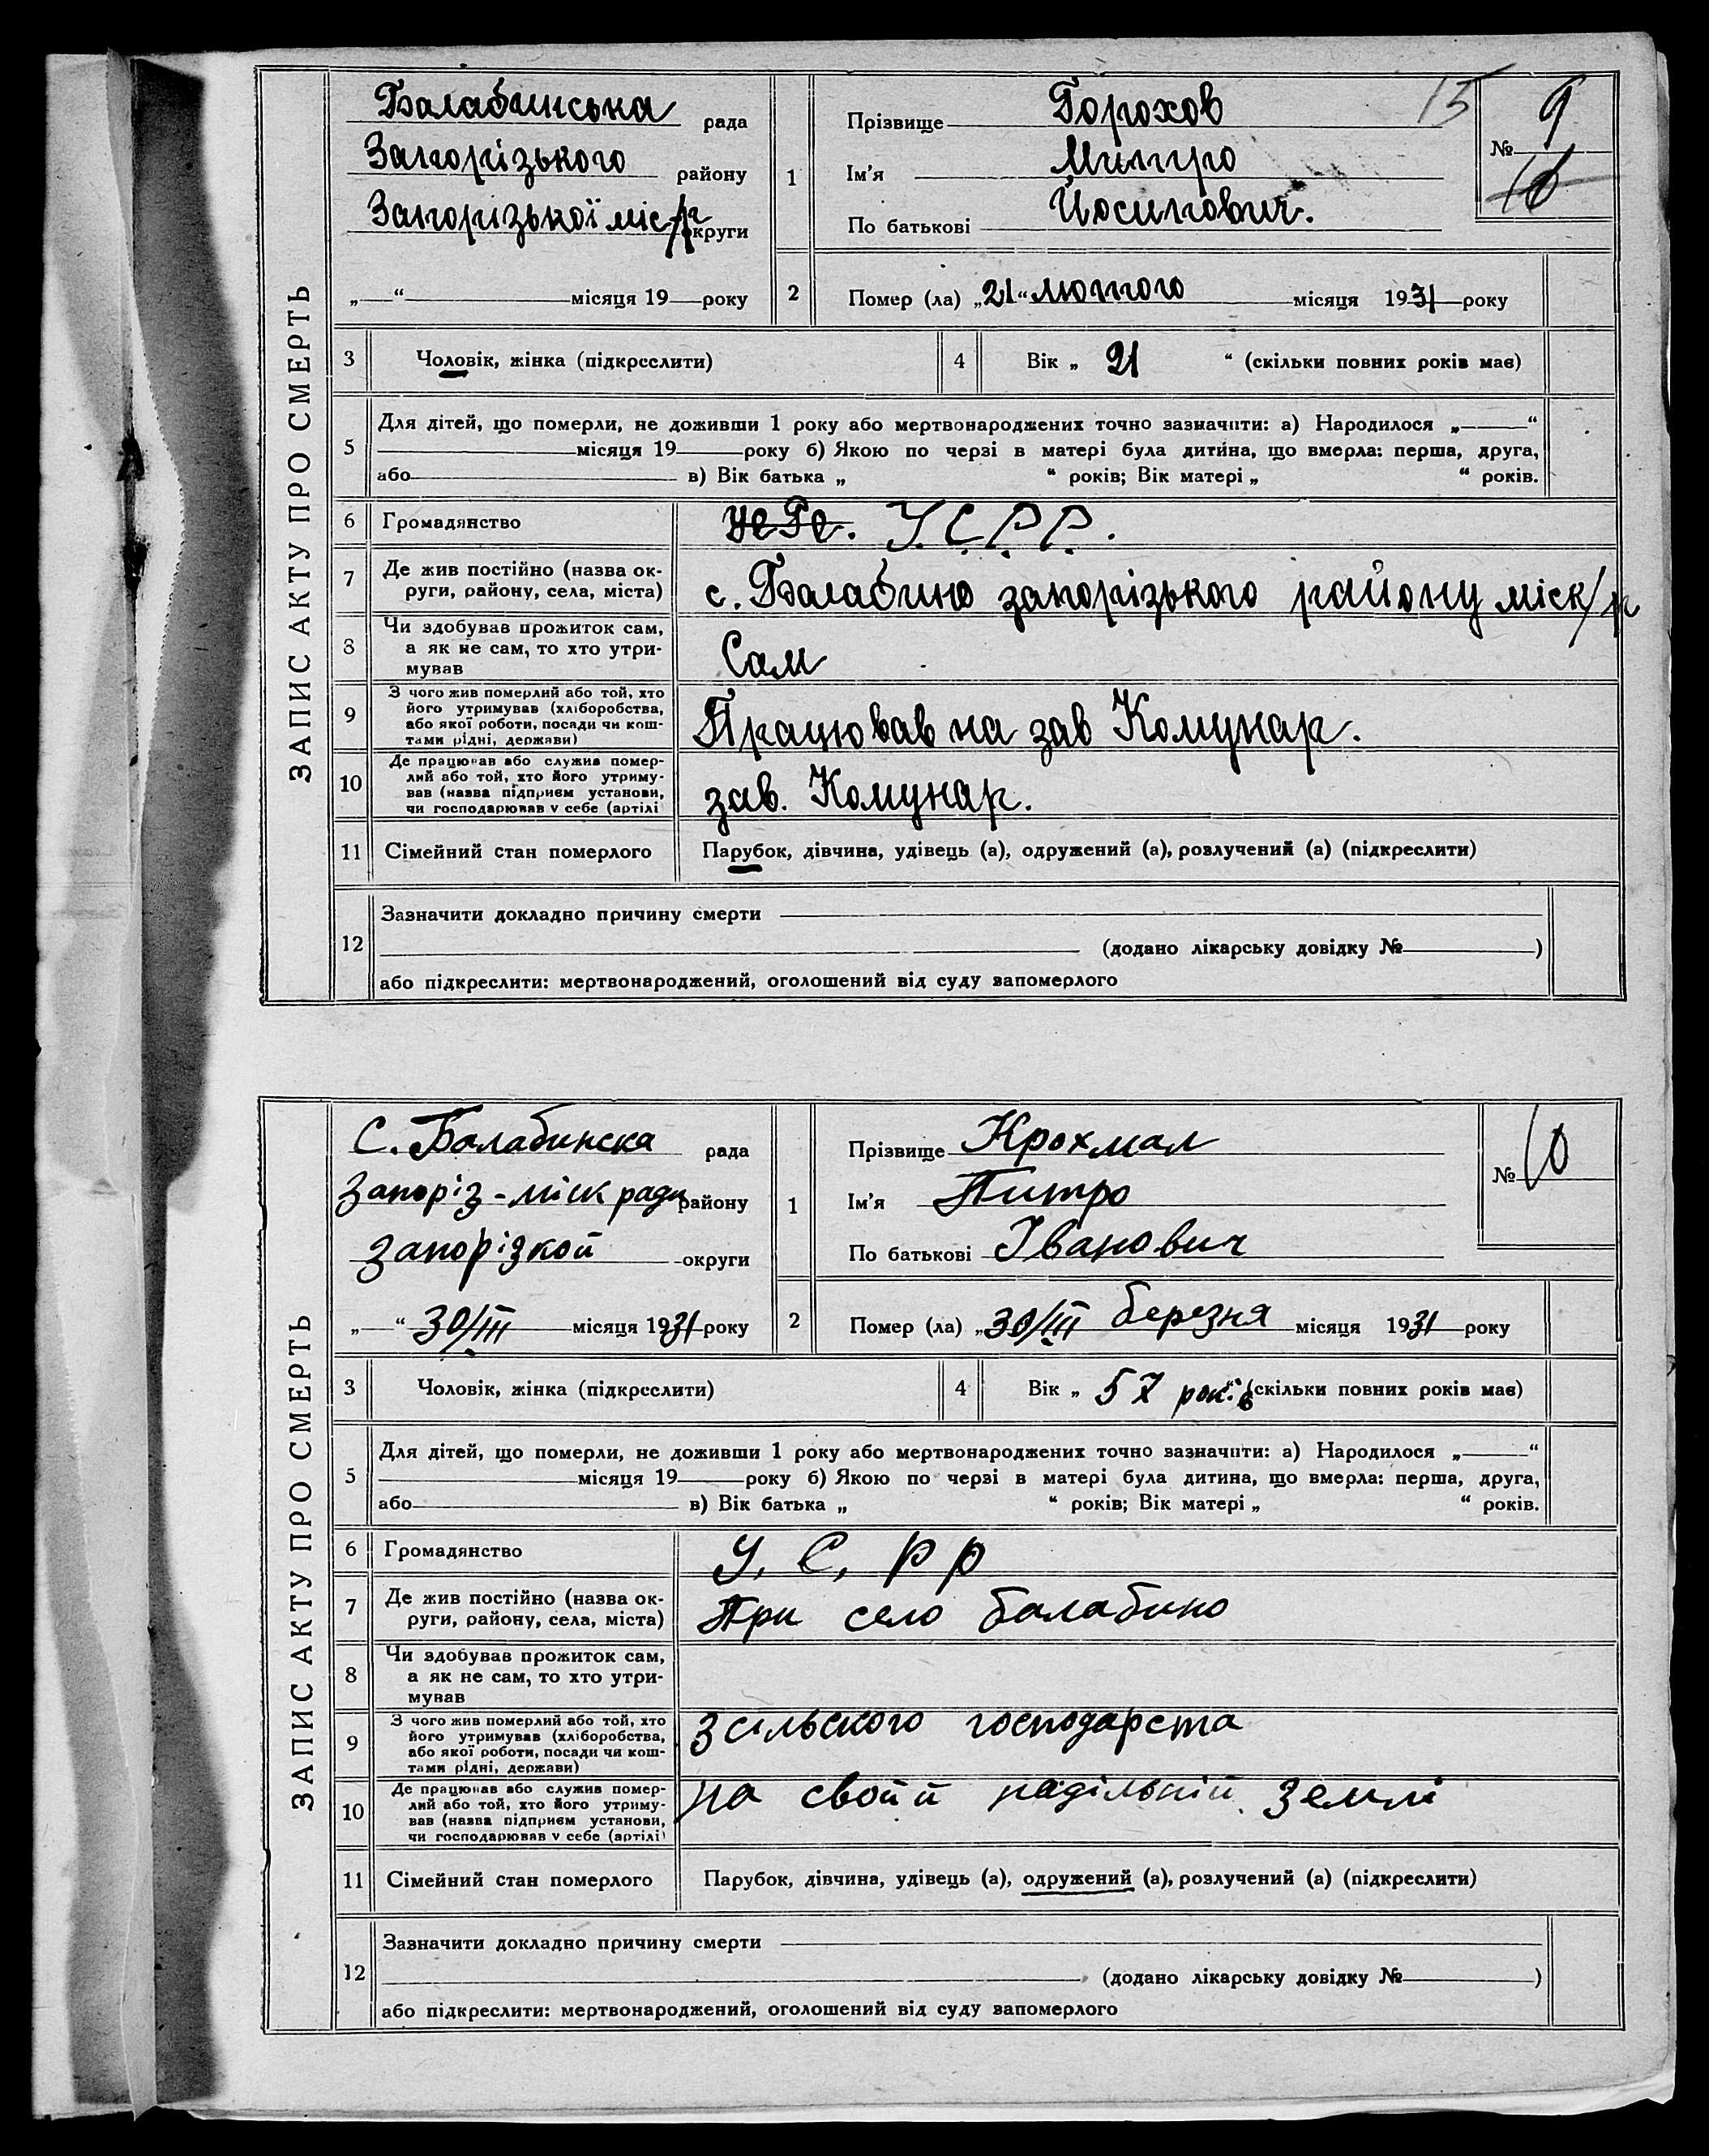 ЗАПИС АКТУ ПРО СМЕРТЬ
Балабинська рада
Запорізького району
Запорізької міс/р округи
„—“ місяця 19 року
1
Прізвище Горохов
Ім'я Митро
По батькові Йосипович.
15
№ 9
10
2
Помер (ла) „21“ лютого місяця 1931 року
3
Чоловік, жінка (підкреслити)
4
Вік „ 21 “ (скільки повних років має)
5
Для дітей, що померли, не доживши 1 року або мертвонароджених точно зазначити: а) Народилося „—“
місяця 19 року б) Якою по черзі в матері була дитина, що вмерла: перша, друга,
або в) Вік батька „ “ років; Вік матері „ “ років.
6
Громадянство
У.С.Р.Р.
7
Де жив постійно (назва ок-
руги, району, села, міста)
с. Балабино запорізького району міск/р
8
Чи здобував прожиток сам,
а як не сам, то хто утри-
мував
Сам
9
З чого жив померлий або той, хто
його утримував (хліборобства,
або якої роботи, посади чи кош-
тами рідні, держави)
Працював на зав Комунар.
10
Де працював або служив помер-
лий або той, хто його утриму-
вав (назва підприєм установи,
чи господарював у себе (артілі
зав. Комунар.
11
Сімейний стан померлого
Парубок, дівчина, удівець (а), одружений (а), розлучений (а) (підкреслити)
12
Зазначити докладно причину смерти
(додано лікарську довідку № )
або підкреслити: мертвонароджений, оголошений від суду запомерлого
ЗАПИС АКТУ ПРО СМЕРТЬ
С. Балабинска рада
Запоріз-міск ради району
Запорізкой округи
„—“ 30/III місяця 1931 року
1
Прізвище Крохмал
Ім'я Питро
По батькові Іванович
№ 10
2
Помер (ла) „30/III березня місяця 1931 року
3
Чоловік, жінка (підкреслити)
4
Вік „ 57 років (скільки повних років має)
5
Для дітей, що померли, не доживши 1 року або мертвонароджених точно зазначити: а) Народилося „—“
місяця 19 року б) Якою по черзі в матері була дитина, що вмерла: перша, друга,
або в) Вік батька „ “ років; Вік матері „ “ років.
6
Громадянство
У. С, р р
7
Де жив постійно (назва ок-
руги, району, села, міста)
При село балабино
8
Чи здобував прожиток сам,
а як не сам, то хто утри-
мував
9
З чого жив померлий або той, хто
його утримував (хліборобства,
або якої роботи, посади чи кош-
тами рідні, держави)
З сільського господарста
10
Де працював або служив помер-
лий або той, хто його утриму-
вав (назва підприєм установи,
чи господарював у себе (артілі)
на свойй надільній землі
11
Сімейний стан померлого
Парубок, дівчина, удівець (а), одружений (а), розлучений (а) (підкреслити)
12
Зазначити докладно причину смерти
(додано лікарську довідку № )
або підкреслити: мертвонароджений, оголошений від суду запомерлого